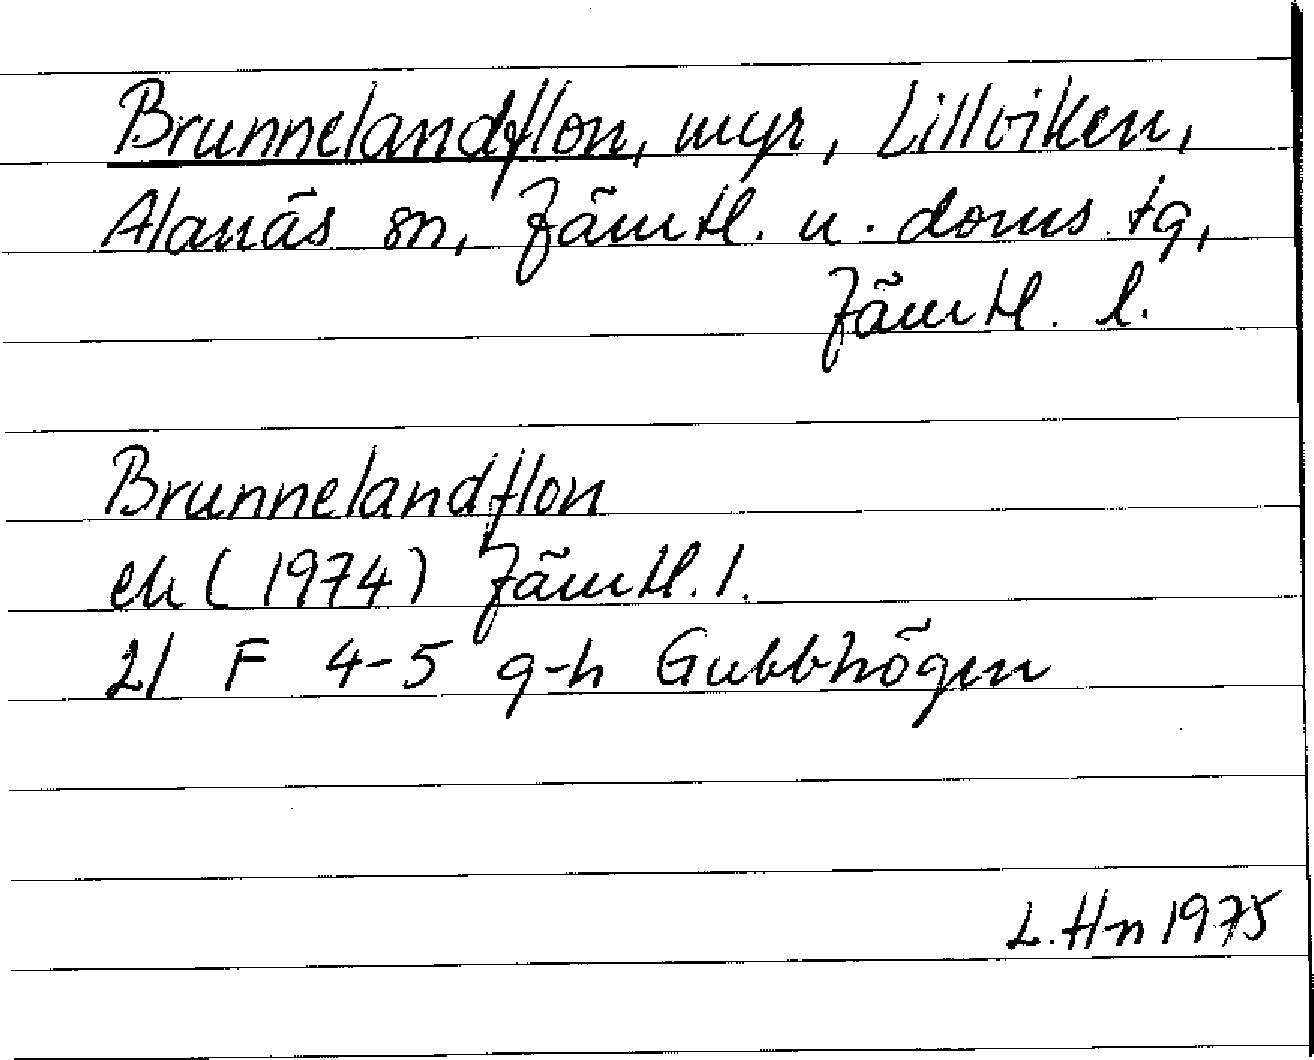 Brunnelandflon, myr, Lillviken,
Alanäs sn, Jämtl. n. doms tg,
Jämtl. l.
Brunnelandflon
ek (1974) Jämtl. l.
21 F 4-5 g-h Gubbhögen
L. Hn 1975